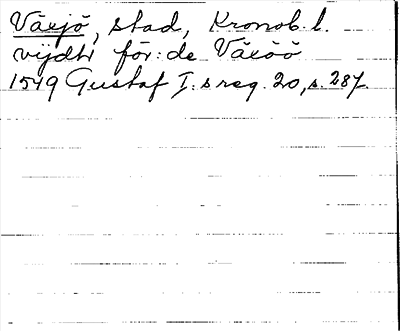 Växjö, stad, Kronob. l.
vijdtr för: de Växöö
1549 Gustaf I:s reg. 20, s. 287.